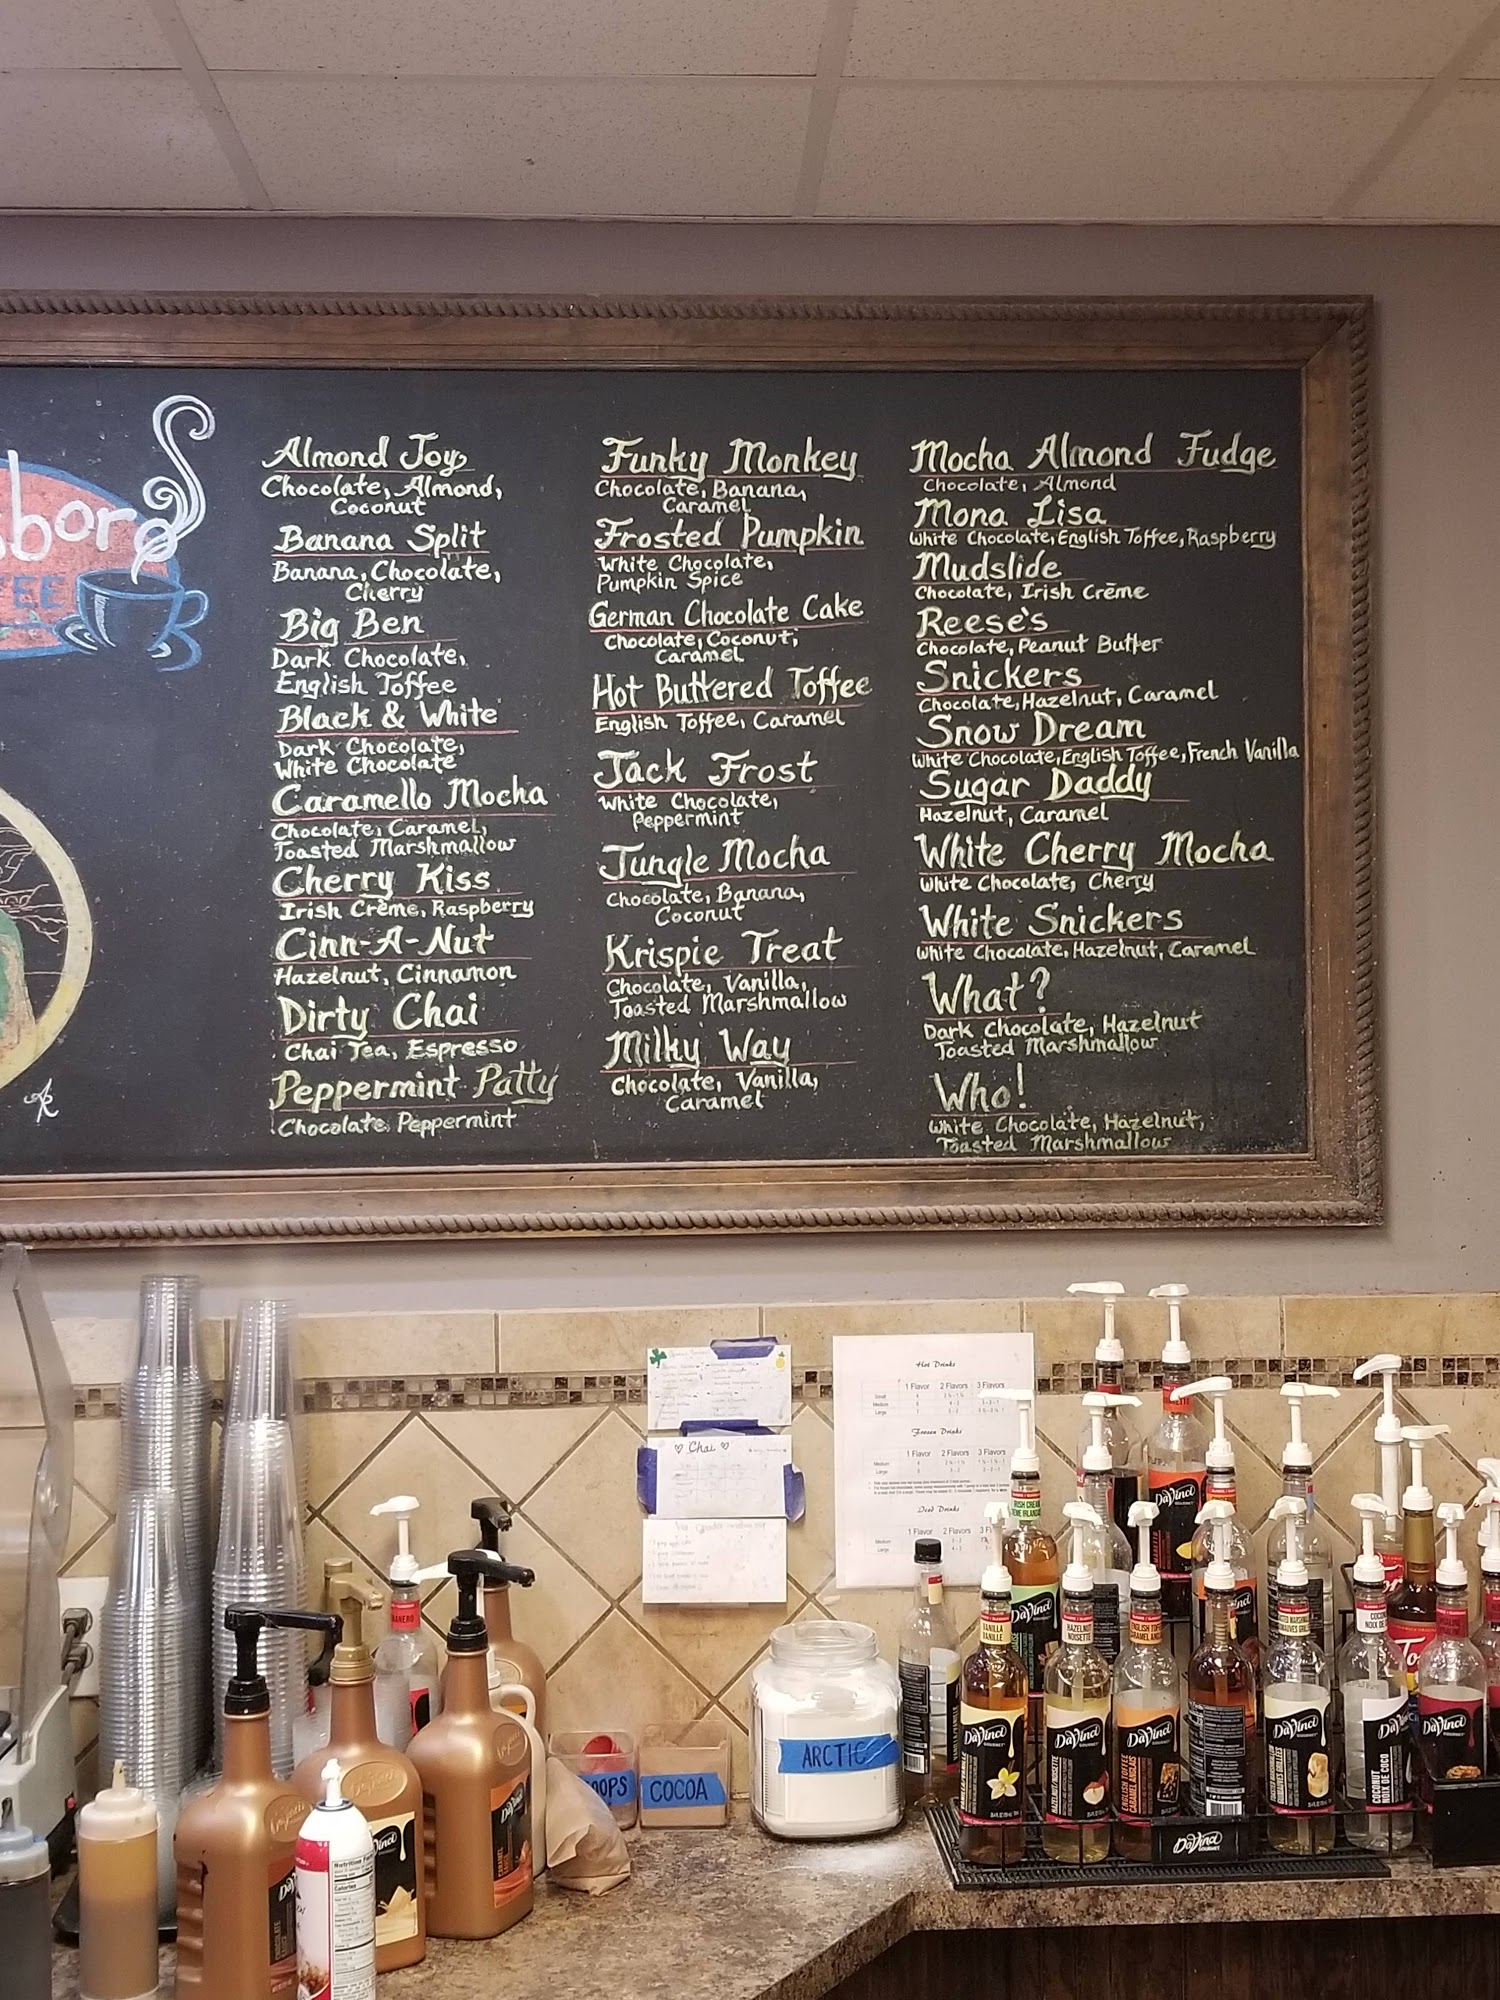 Almond Joy
Chocolate, Almond,
Coconut
Banana Split
Banana, Chocolate,
Cherry
Big Ben
Dark Chocolate,
English Toffee
Black & White
Dark Chocolate,
White Chocolate
Caramello Mocha
Chocolate, Caramel,
Toasted Marshmallow
Cherry Kiss
Irish Crème, Raspberry
Cinn-A-Nut
Hazelnut, Cinnamon
Dirty Chai
Chai Tea, Espresso
Peppermint Patty
Chocolate, Peppermint
Funky Monkey
Chocolate, Banana,
Caramel
Frosted Pumpkin
White Chocolate,
Pumpkin Spice
German Chocolate Cake
Chocolate, Coconut,
Caramel
Hot Buttered Toffee
English Toffee, Caramel
Jack Frost
White Chocolate,
Peppermint
Jungle Mocha
Chocolate, Banana,
Coconut
Krispie Treat
Chocolate, Vanilla,
Toasted Marshmallow
Milky Way
Chocolate, Vanilla,
Caramel
Mocha Almond Fudge
Chocolate, Almond
Mona Lisa
White Chocolate, English Toffee, Raspberry
Mudslide
Chocolate, Irish Crème
Reese's
Chocolate, Peanut Butter
Snickers
Chocolate, Hazelnut, Caramel
Snow Dream
White Chocolate, English Toffee, French Vanilla
Sugar Daddy
Hazelnut, Caramel
White Cherry Mocha
White Chocolate, Cherry
White Snickers
White Chocolate, Hazelnut, Caramel
What?
Dark Chocolate, Hazelnut
Toasted Marshmallow
Who!
White Chocolate, Hazelnut,
Toasted Marshmallow
AR
Chai
Hot Drinks
1 Flavor 2 Flavors 3 Flavors
Small
Medium
Large
Frozen Drinks
1 Flavor 2 Flavors 3 Flavors
Medium
Large
Iced Drinks
1 Flavor 2 Flavors
Medium
Large
ARCTIC
COCOA
IRISH CREAM
DaVinci
DaVinci
VANILLA
VANILLE
HAZELNUT
NOISETTE
DaVinci
GOURMET
DaVinci
GOURMET
ENGLISH TOFFEE
DaVinci
GOURMET
COCONUT
NOIX DE COCO
DaVinci
DaVinci
GOURMET
Nutrition Facts
Calories
DaVinci
CARAMEL
SAUCE